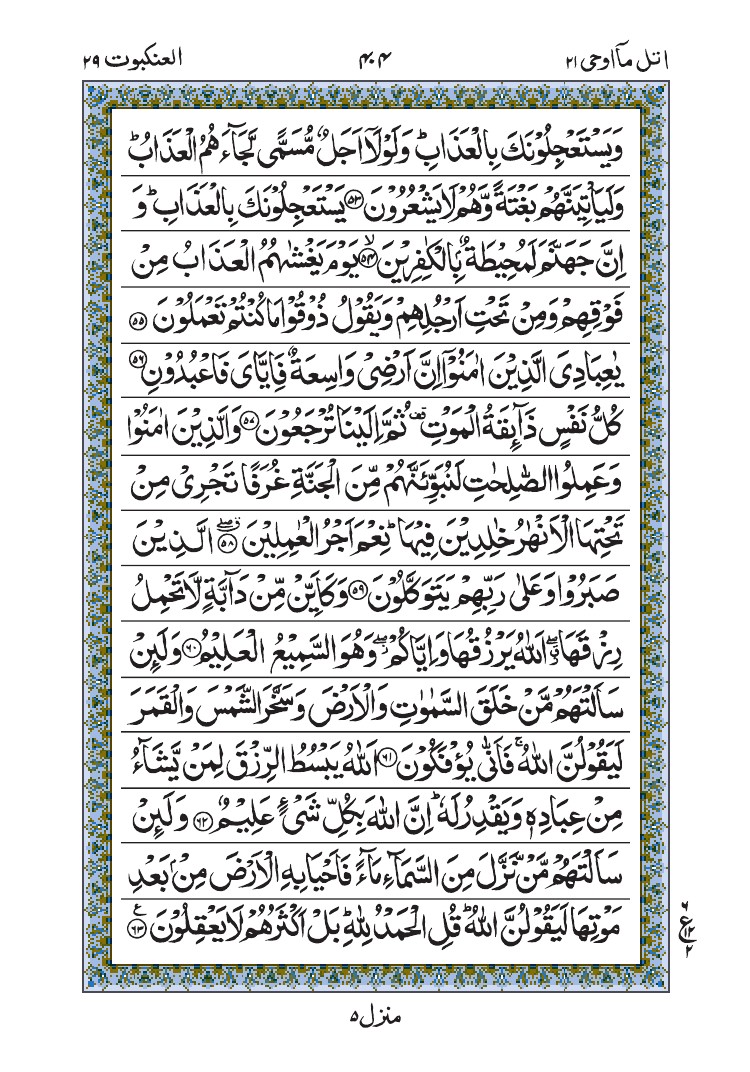 اتل ماۤاوحی ۲۱
۴۰۴
العنکبوت ۲۹
وَیَسْتَعْجِلُوْنَكَ بِالْعَذَابِؕ وَلَوْلَاۤ اَجَلٌ مُّسَمًّی لَّجَآءَهُمُ الْعَذَابُؕ
وَلَیَاْتِیَنَّهُمْ بَغْتَةً وَّهُمْ لَا یَشْعُرُوْنَ ﴿۵۳﴾ یَسْتَعْجِلُوْنَكَ بِالْعَذَابِؕ وَ
اِنَّ جَهَنَّمَ لَمُحِیْطَةٌۢ بِالْكٰفِرِیْنَ ﴿۵۴﴾ۙ یَوْمَ یَغْشٰىهُمُ الْعَذَابُ مِنْ
فَوْقِهِمْ وَمِنْ تَحْتِ اَرْجُلِهِمْ وَیَقُوْلُ ذُوْقُوْا مَا كُنْتُمْ تَعْمَلُوْنَ ﴿۵۵﴾
یٰعِبَادِیَ الَّذِیْنَ اٰمَنُوْۤا اِنَّ اَرْضِیْ وَاسِعَةٌ فَاِیَّایَ فَاعْبُدُوْنِ ﴿۵۶﴾
كُلُّ نَفْسٍ ذَآىِٕقَةُ الْمَوْتِ۫ ثُمَّ اِلَیْنَا تُرْجَعُوْنَ ﴿۵۷﴾ وَالَّذِیْنَ اٰمَنُوْا
وَعَمِلُوا الصّٰلِحٰتِ لَنُبَوِّئَنَّهُمْ مِّنَ الْجَنَّةِ غُرَفًا تَجْرِیْ مِنْ
تَحْتِهَا الْاَنْهٰرُ خٰلِدِیْنَ فِیْهَاؕ نِعْمَ اَجْرُ الْعٰمِلِیْنَ ﴿۵۸﴾ۗۖ الَّذِیْنَ
صَبَرُوْا وَعَلٰی رَبِّهِمْ یَتَوَكَّلُوْنَ ﴿۵۹﴾ وَكَاَیِّنْ مِّنْ دَآبَّةٍ لَّا تَحْمِلُ
رِزْقَهَا ۖۗ اَللّٰهُ یَرْزُقُهَا وَاِیَّاكُمْ ۖؗ وَهُوَ السَّمِیْعُ الْعَلِیْمُ ﴿۶۰﴾ وَلَىِٕنْ
سَاَلْتَهُمْ مَّنْ خَلَقَ السَّمٰوٰتِ وَالْاَرْضَ وَسَخَّرَ الشَّمْسَ وَالْقَمَرَ
لَیَقُوْلُنَّ اللّٰهُۚ فَاَنّٰی یُؤْفَكُوْنَ ﴿۶۱﴾ اَللّٰهُ یَبْسُطُ الرِّزْقَ لِمَنْ یَّشَآءُ
مِنْ عِبَادِهٖ وَیَقْدِرُ لَهٗؕ اِنَّ اللّٰهَ بِكُلِّ شَیْءٍ عَلِیْمٌ ﴿۶۲﴾ وَلَىِٕنْ
سَاَلْتَهُمْ مَّنْ نَّزَّلَ مِنَ السَّمَآءِ مَآءً فَاَحْیَا بِهِ الْاَرْضَ مِنْۢ بَعْدِ
مَوْتِهَا لَیَقُوْلُنَّ اللّٰهُؕ قُلِ الْحَمْدُ لِلّٰهِؕ بَلْ اَكْثَرُهُمْ لَا یَعْقِلُوْنَ ﴿۶۳﴾ع
۶
ع ۱۲
۲
منزل ۵